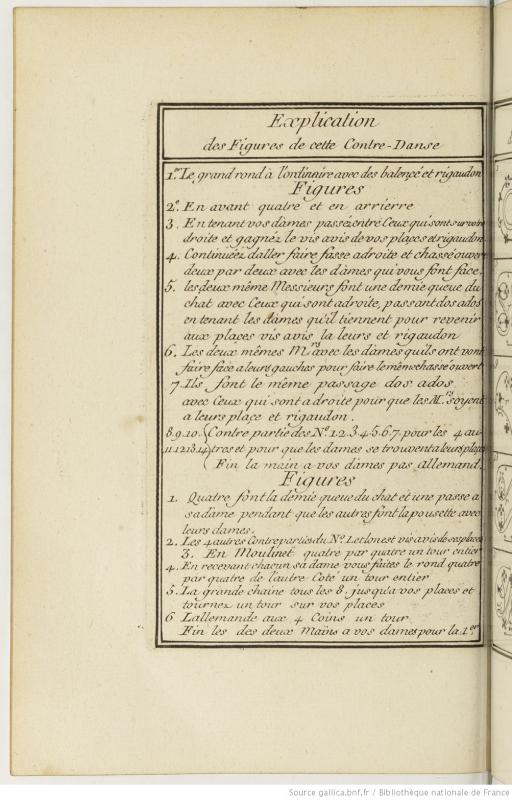 Explication
des Figures de cette Contre-Danse
1.er Le grand rond à l'ordinnire avec des balençé et rigaudon
Figures
2.e En avant quatre et en arrierre
3. En tenant vos dames passé entré Ceux qui sont sur votre
droite et gagnéz le vis avis de vos plaçes et rigaudon
4. Continüéz daller faire fasse adroite et chassé ouvert
deux par deux avec les dames qui vous font face.
5. les deux même Messieurs font une demie queue du
chat avec Ceux qui sont adroite, passant dos ados
en tenant les dames qu'il tiennent pour revenir
aux places vis avis la leurs et rigaudon
6. Les deux mêmes M.rs avec les dames quils ont vont
faire façe a leurs gauches pour faire le même chassé ouvert
7. Ils font le même passage dos ados
avec Ceux qui sont a droite pour que les M.rs soyent
a leurs plaçe et rigaudon.
8.9.10. Contre partie des N.o 1.2.3.4.5.6.7. pour les 4 au-
11.12.13.14 tres et pour que les dames se trouvent a leurs plaçes
Fin la main a vos dames pas allemand.
Figures
1. Quatre font la demie queue du chat et une passe a
sa dame pendant que les autres font la pousette avec
leurs dames.
2. Les 4 autres Contre parties du N.o 1. et lon est vis avis de ses places
3. En Moulinet quatre par quatre un tour entier
4. En recevant chacun sa dame vous faites le rond quatre
par quatre de l'autre Coté un tour entier
5. La grande chaine tous les 8. jusqu'a vos places et
tournez un tour sur vos places
6 Lallemande aux 4 Coins un tour
Fin les des deux Mains a vos dames pour la 1.er
Source gallica.bnf.fr / Bibliothèque nationale de France